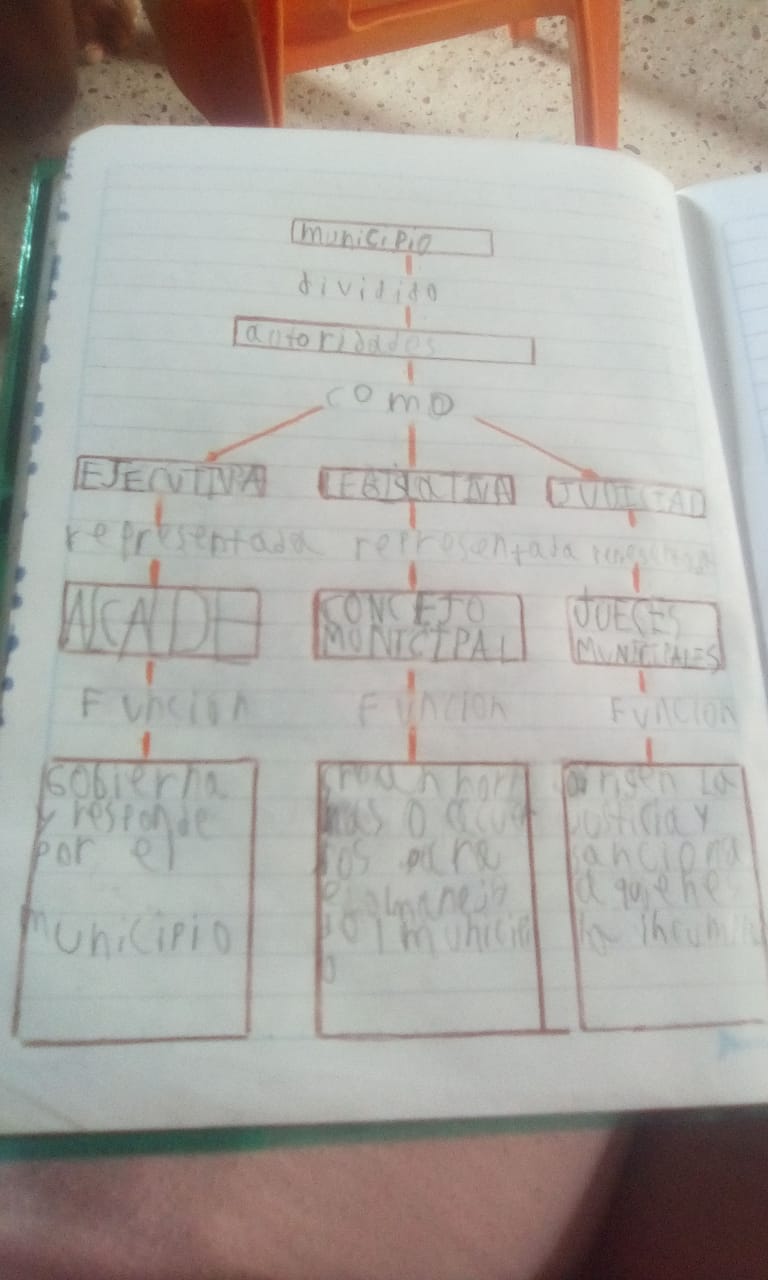 municipio
dividido
autoridades
como
EJECUTIVA
LEGISLATIVA
JUDICIAL
representada
representada
ALCADE
CONCEJO
MUNICIPAL
JUECES
MUNICIPALES
Funcion
Funcion
Funcion
Gobierna
y responde
por el
municipio
nas o acuer
el manejo
municipi
o
dirigen La
justicia y
sanciona
a quienes
la incumple